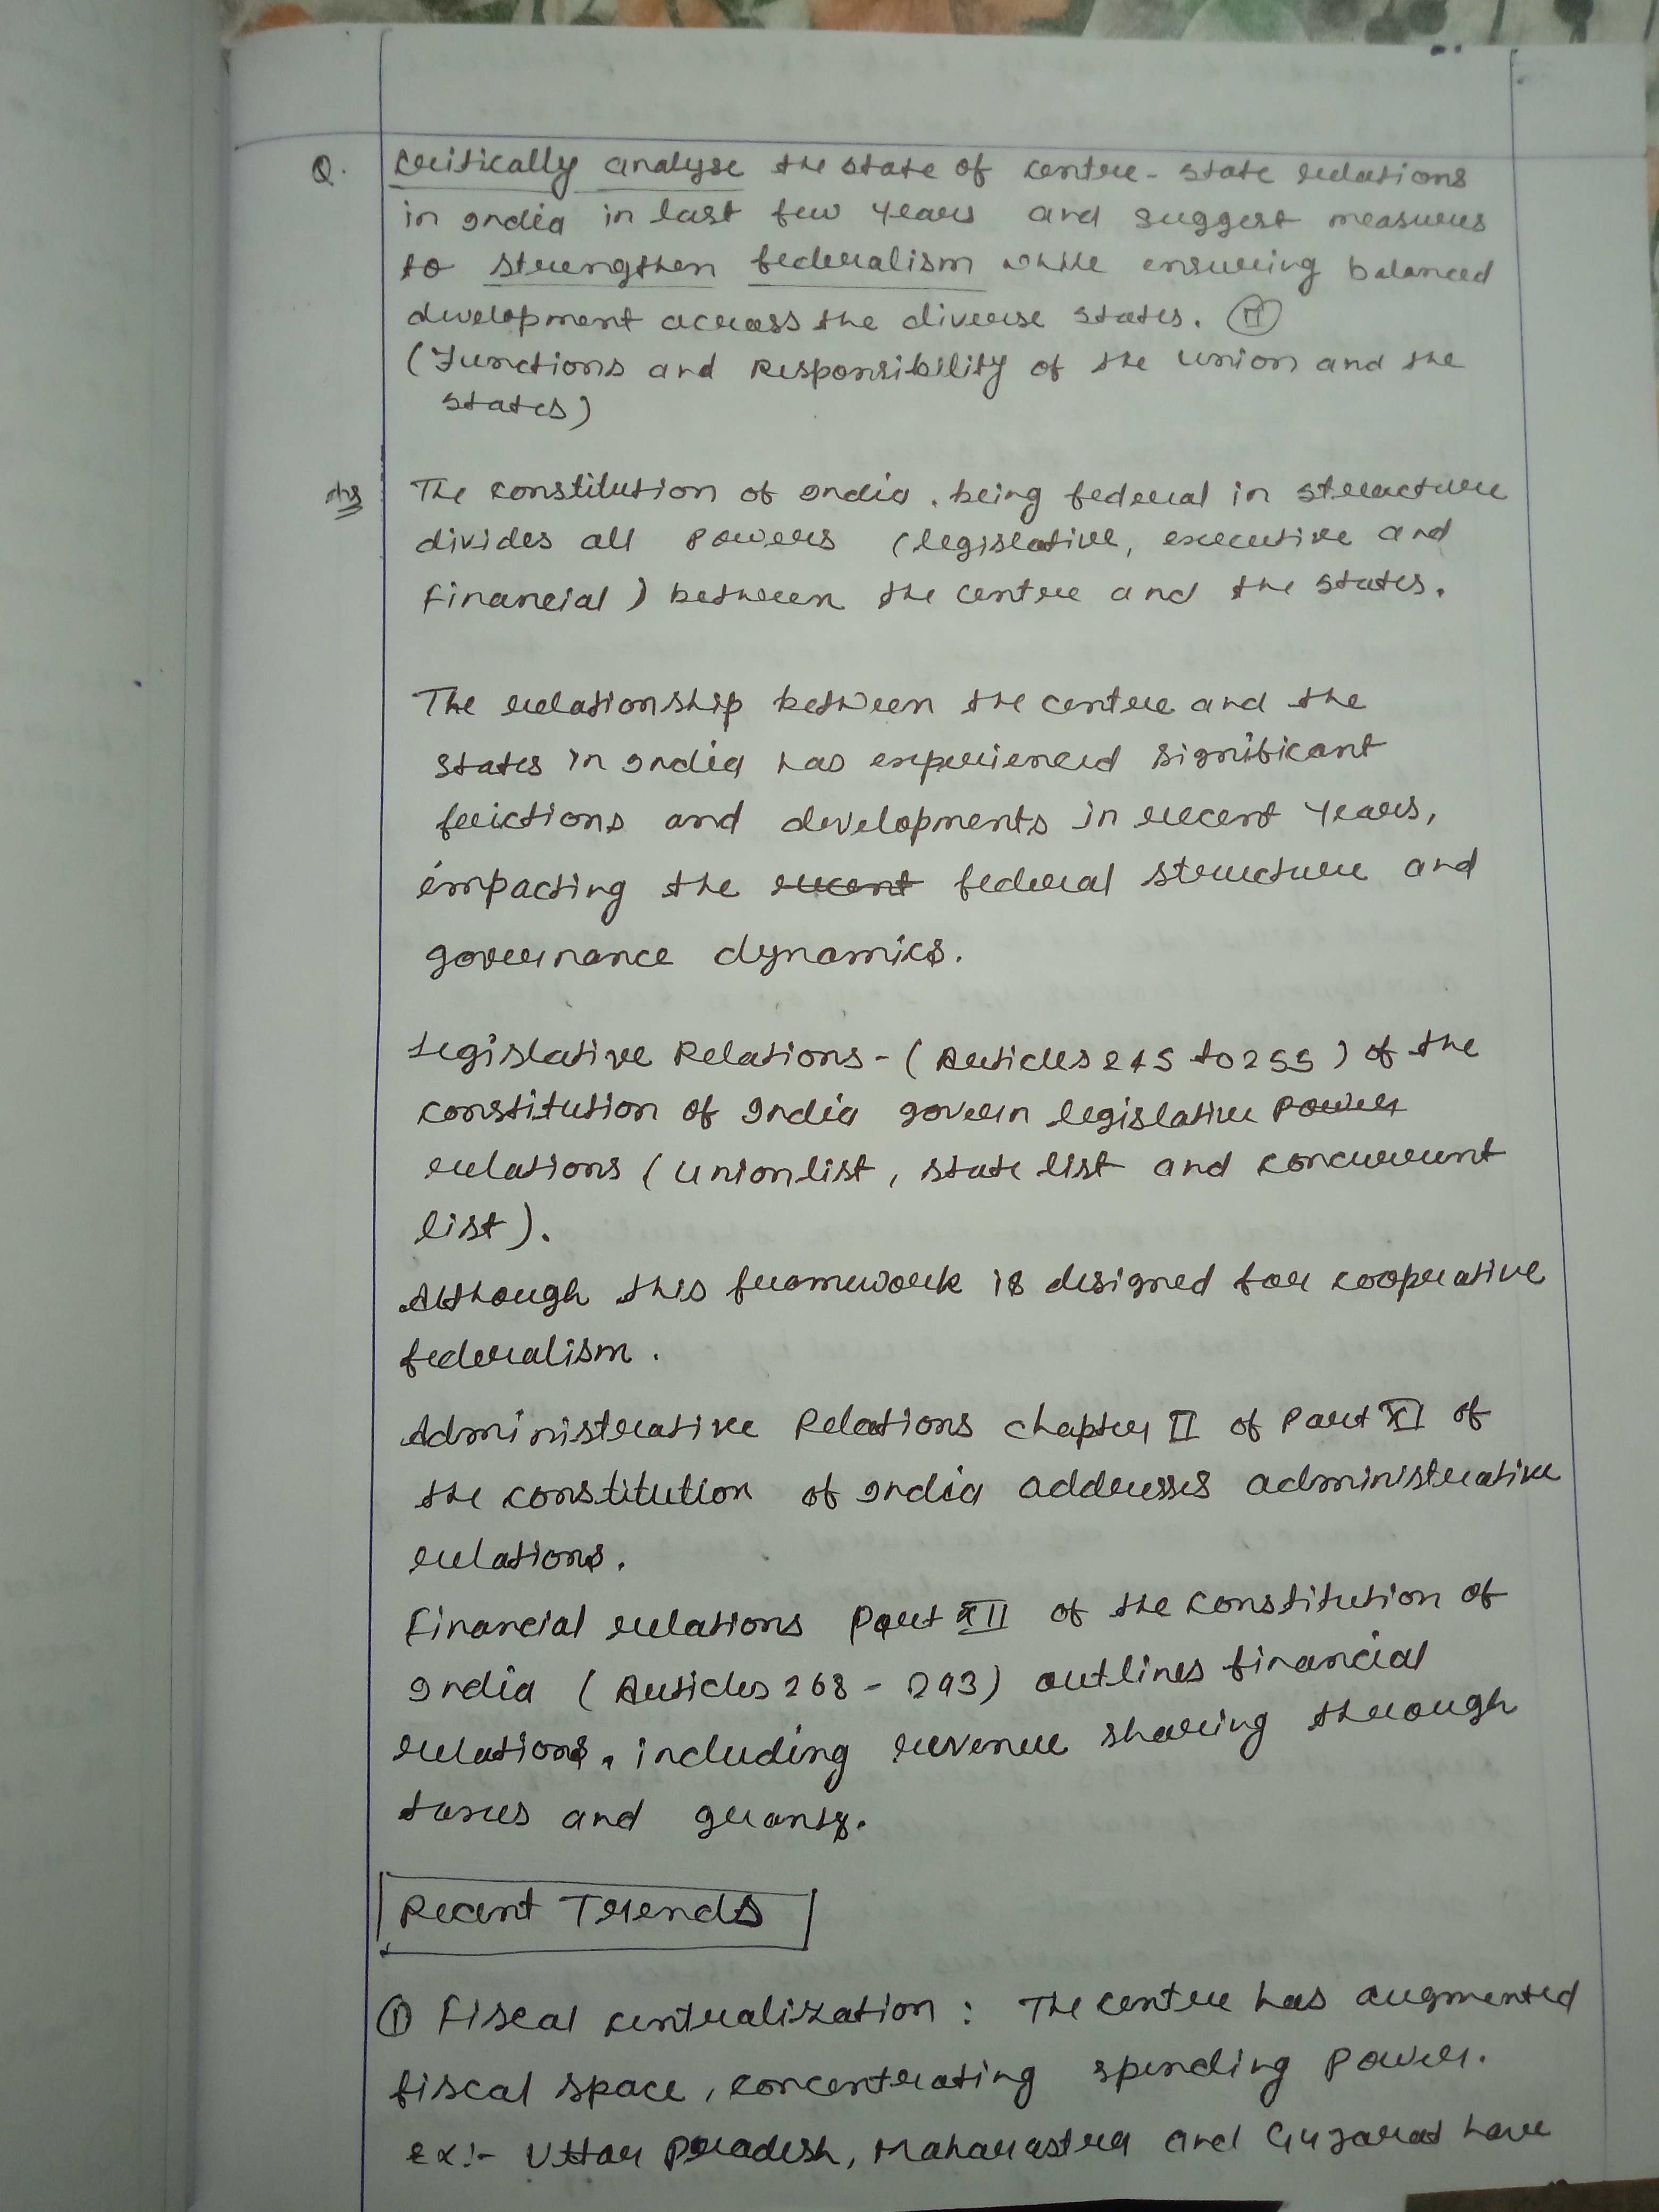 Q. Critically analyse the state of centre - state relations
in India in last few years and suggest measures
to strengthen federalism while ensuring balanced
development across the diverse states.
(Functions and Responsibility of the union and the
states)
Ans The constitution of India, being federal in structure
divides all powers (legislative, executive and
financial) between the centre and the states.
The relationship between the centre and the
states in India has experienced significant
frictions and developments in recent years,
impacting the recent federal structure and
governance dynamics.
Legislative Relations - (Articles 245 to 255) of the
constitution of India govern legislative power
relations (union list, state list and concurrent
list).
Although this framework is designed for cooperative
federalism.
Administrative Relations chapter II of Part XI of
the constitution of India addresses administrative
relations.
Financial relations Part XII of the constitution of
India (Articles 268 - 293) outlines financial
relations, including revenue sharing through
taxes and grants.
Recent Trends
① Fiscal centralization : The centre has augmented
fiscal space, concentrating spending power.
Ex:- Uttar Pradesh, Maharastra and Gujarat have